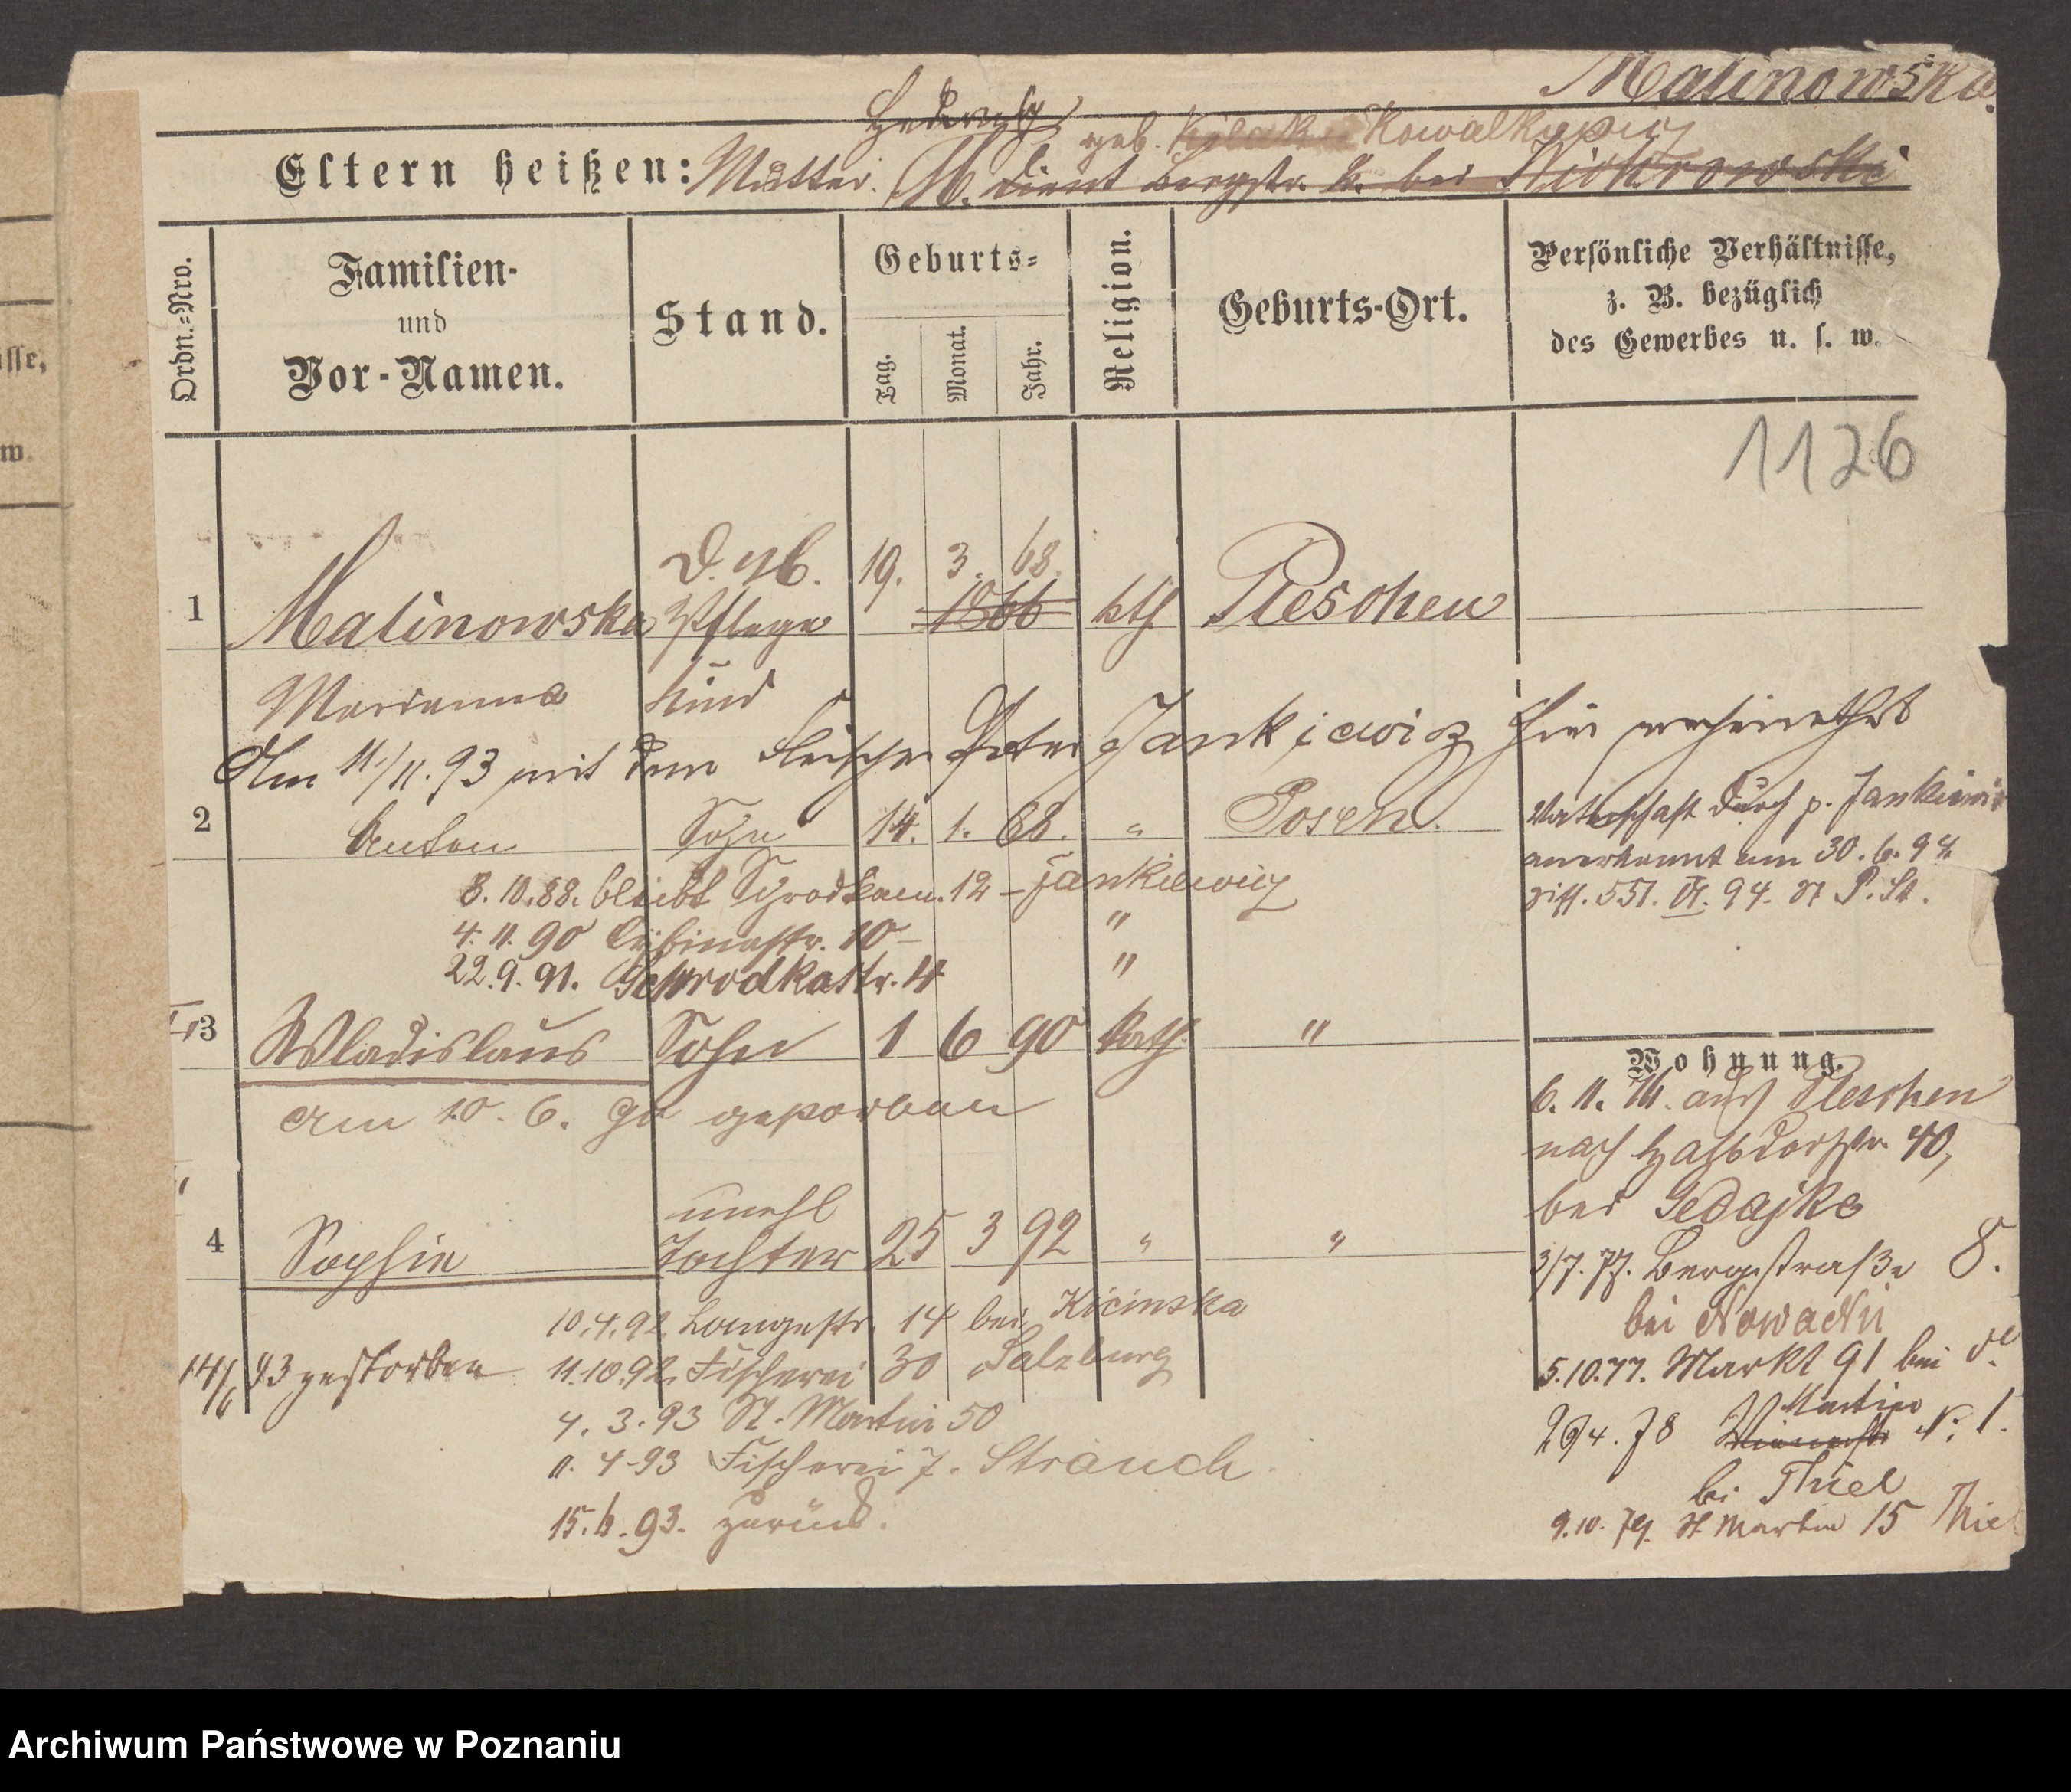 Malinowska
Hedwig
geb. Kowalkiewicz
Eltern heißen: Mutter. M. dient Bergstr. 8. bei
Ordn.=Nro.
Familien-
und
Vor-Namen.
Stand.
Geburts=
Tag.
Monat.
Jahr.
Religion.
Geburts-Ort.
Persönliche Verhältnisse,
z. B. bezüglich
des Gewerbes u. s. w.
1126
D. M. 19. 3. 68.
1 Malinowska Pflege 1866 kth. Pleschen
Marianna kind
Am 11/11. 93 mit dem Fleischer Peter Jankiewicz hier verheirathet
2 Anton Sohn 14. 1. 88. " Posen.
Vaterschaft durch p. Jankiewicz
anerkannt am 30. 6. 94.
551. VI. 94. St P. St.
8. 10. 88. bleibt Schrodkam. 12 - Jankiewicz
4. 11. 90 Cybinastr. 10 - "
22. 9. 91. Schrodkastr. 4 "
3 Wladislaus Sohn 1 6 90 kath. "
am 10. 6. 90 gestorben
Wohnung.
6. 11. 76. aus Pleschen
nach Halbdorfstr. 40,
bei Gedajke
3/7. 77. Bergstraße 8.
bei Nowacki
5. 10. 77. Markt 91 bei d.
29/4. 78 Martin N. 1.
bei Thiel
9. 10. 79. St Martin 15 Thiel
unehl
4 Sophie Tochter 25 3 92 " "
10. 4. 92. Langestr. 14 bei Kicinska
14/6 93 gestorben 11. 10. 92. Fischerei 30 Salzburg
4. 3. 93 St. Martin 50
11. 4 - 93 Fischerei 7. Strauch.
15. 6. 93. zurück.
Archiwum Państwowe w Poznaniu